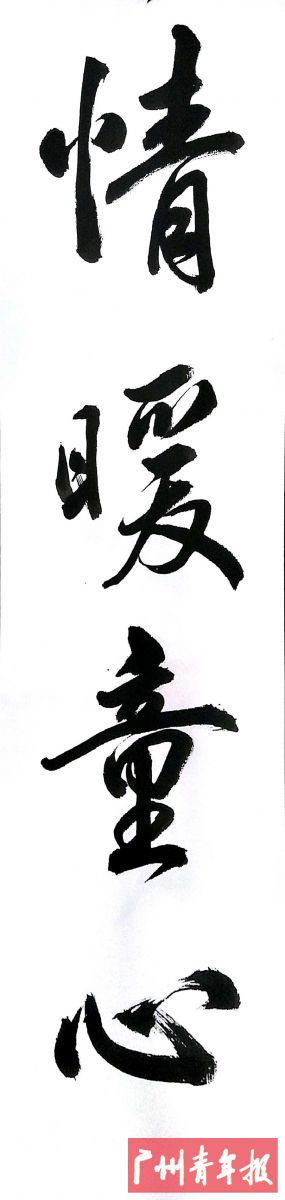 情暖童心
广州青年报